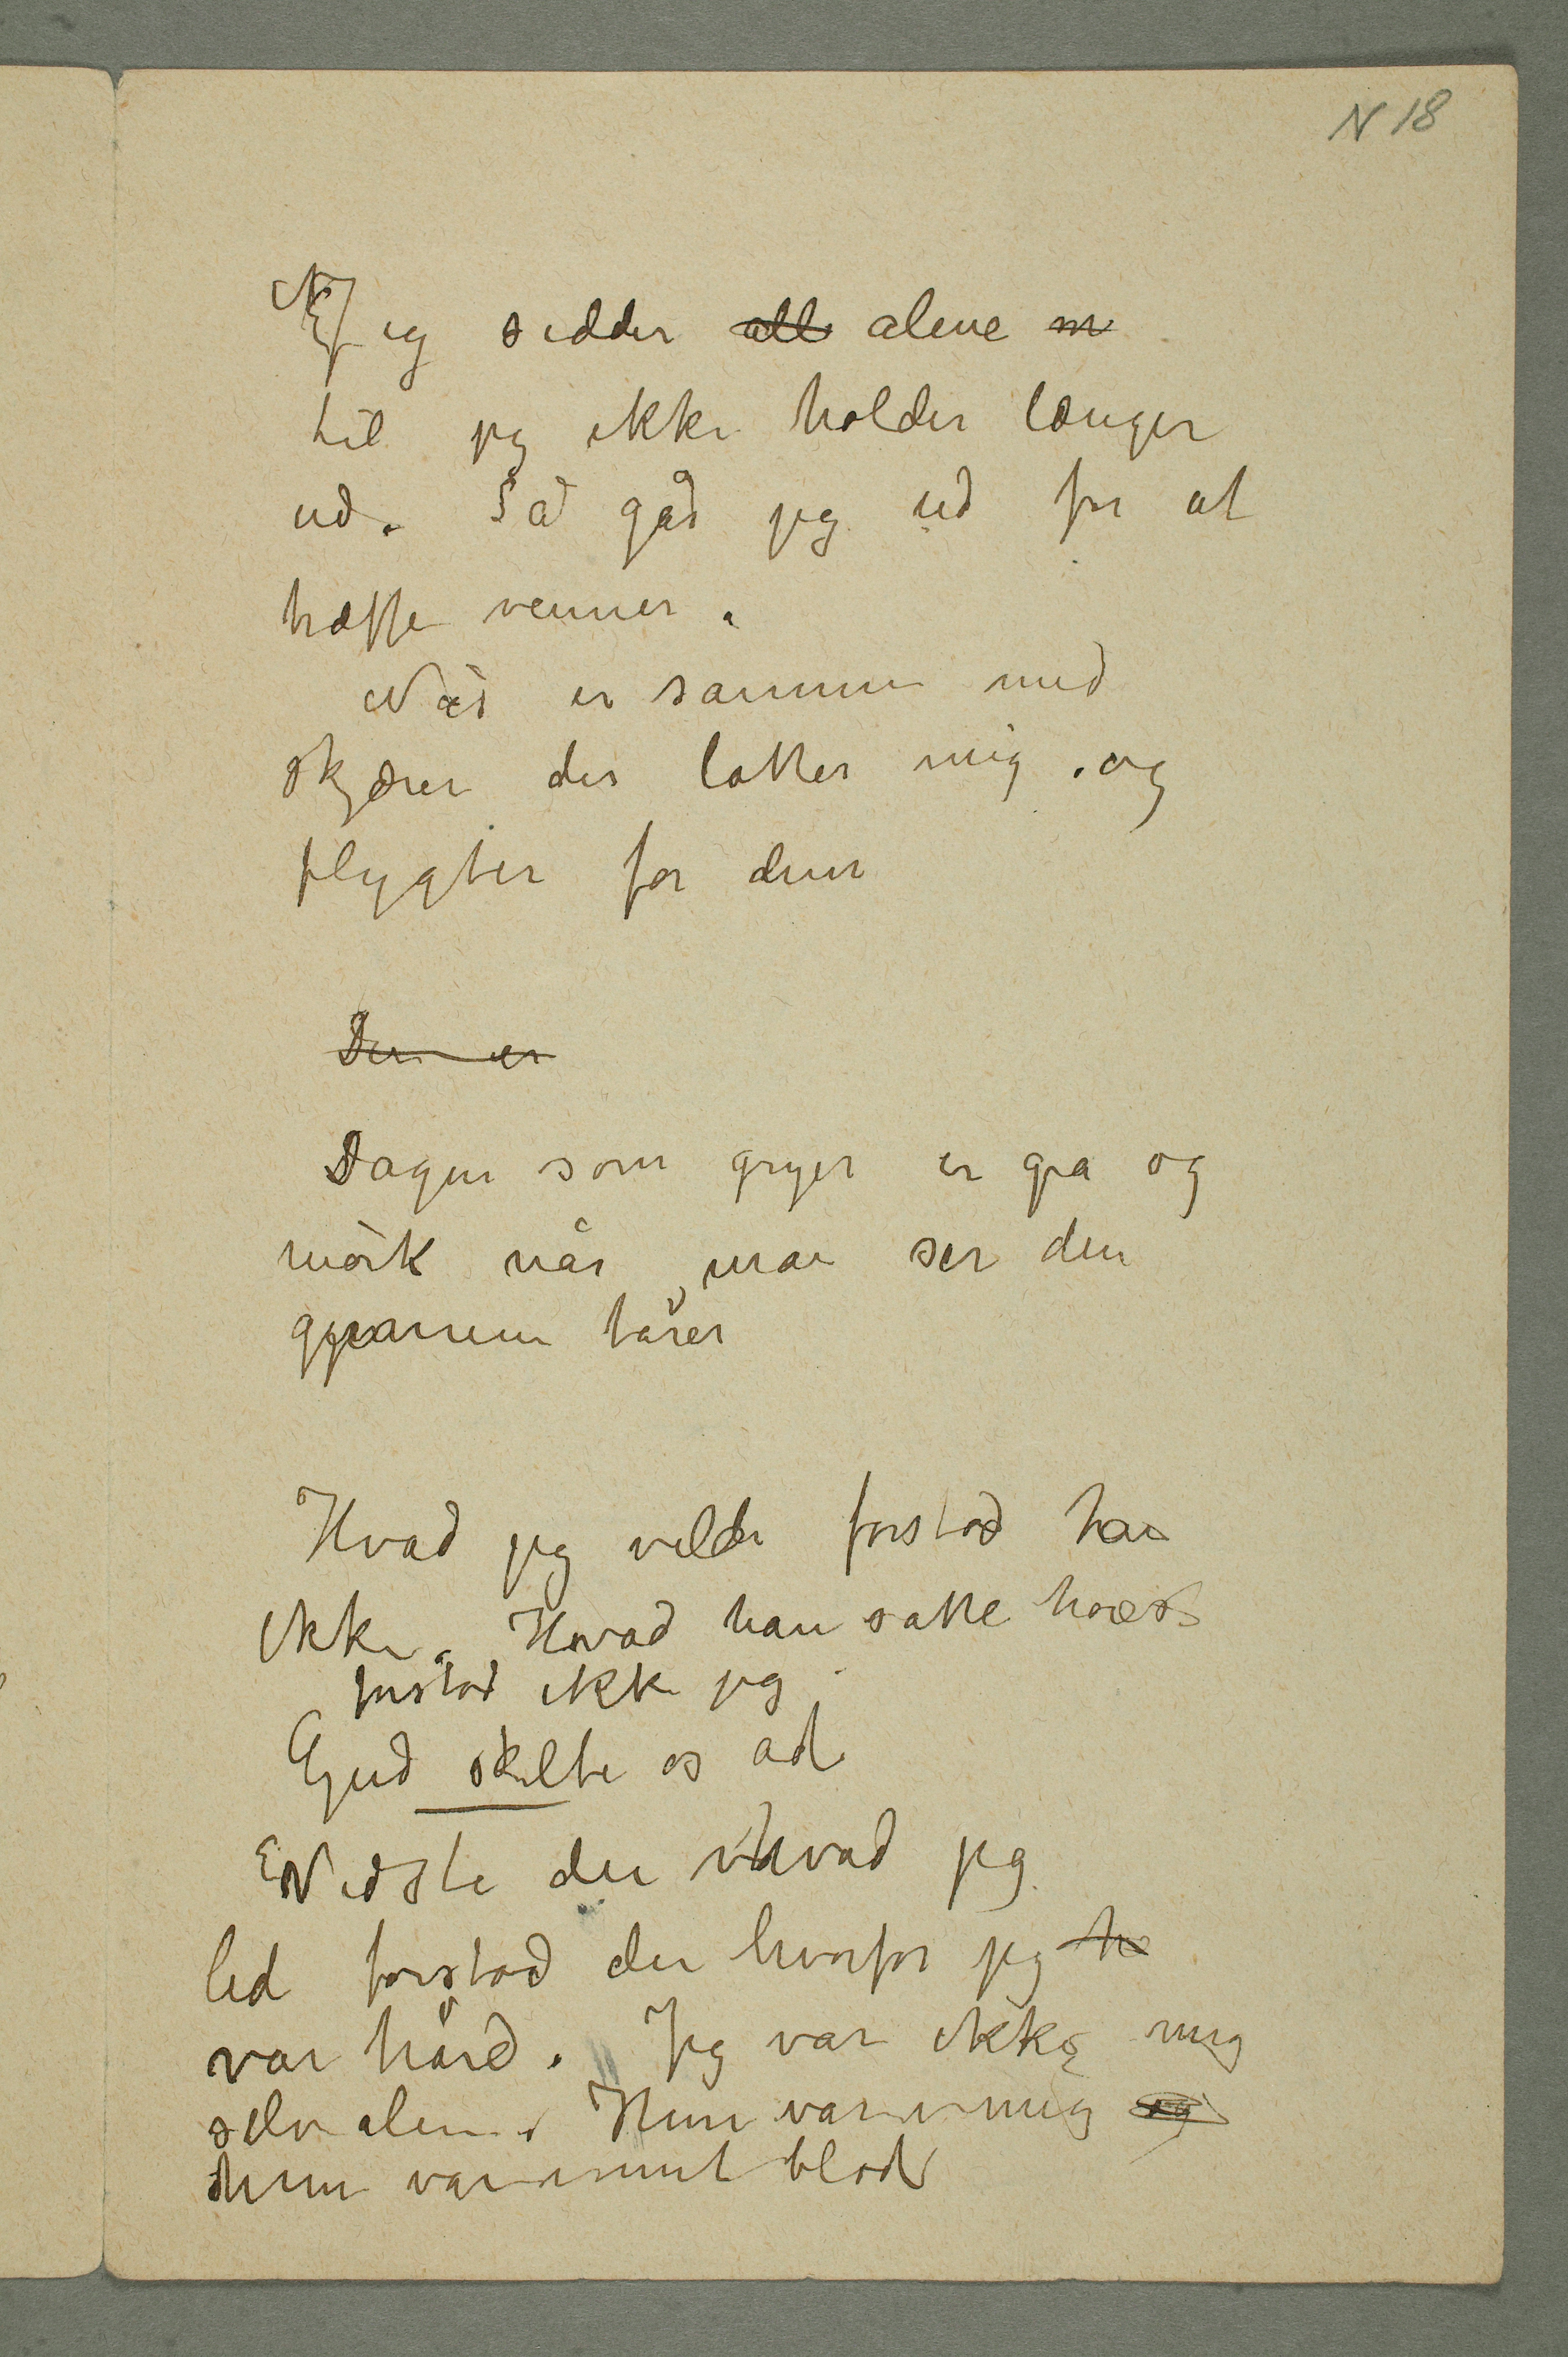 N 18
Jeg sidder all alene m
til jeg ikke holder længer
ud. Så går jeg ud for at
træffe venner.
Når er sammen med
skjærer der latter mig . og
flygter for dem
Den er
Dagen som gryer er gra og
mörk når man ser den
gjennem tårer
Hvad jeg vilde forstod han
ikke. Hvad han satte höiest
forstod ikke jeg
Gud skilte os ad
Vidste du hvad jeg
led forstod du hvorfor jeg h
var hård. Jeg var ikke mig
selv alene. Hun var i mig og
hun var i mit blod